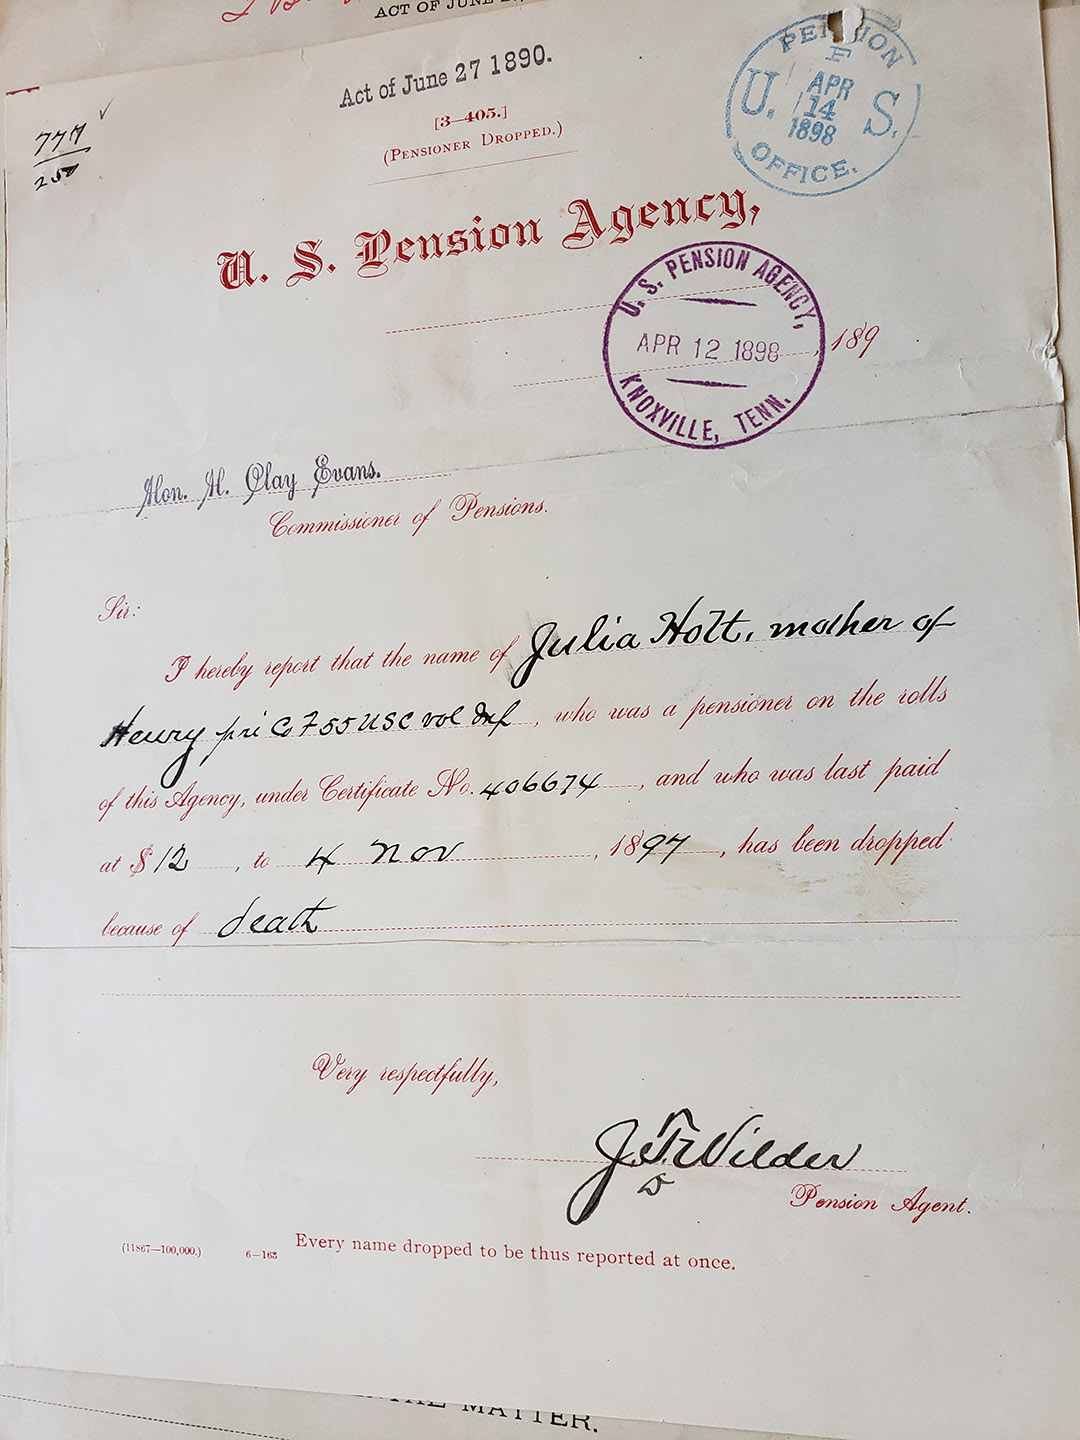 ACT OF JUNE
Act of June 27 1890.
[3—405.]
(Pensioner Dropped.)
777
250
PENSION
F
APR
U. 14 S.
1898
OFFICE.
U. S. Pension Agency,
U. S. PENSION AGENCY,
APR 12 1898
KNOXVILLE, TENN.
, 189
Hon. H. Clay Evans.
Commissioner of Pensions.
Sir:
I hereby report that the name of Julia Holt, mother of
Henry pri Co F 55 USC vol Inf, who was a pensioner on the rolls
of this Agency, under Certificate No. 406674, and who was last paid
at $12, to 4 Nov, 1897, has been dropped
because of death
Very respectfully,
J. T. Wilder
Pension Agent.
(11867—100,000.) 6—163 Every name dropped to be thus reported at once.
MATTER.